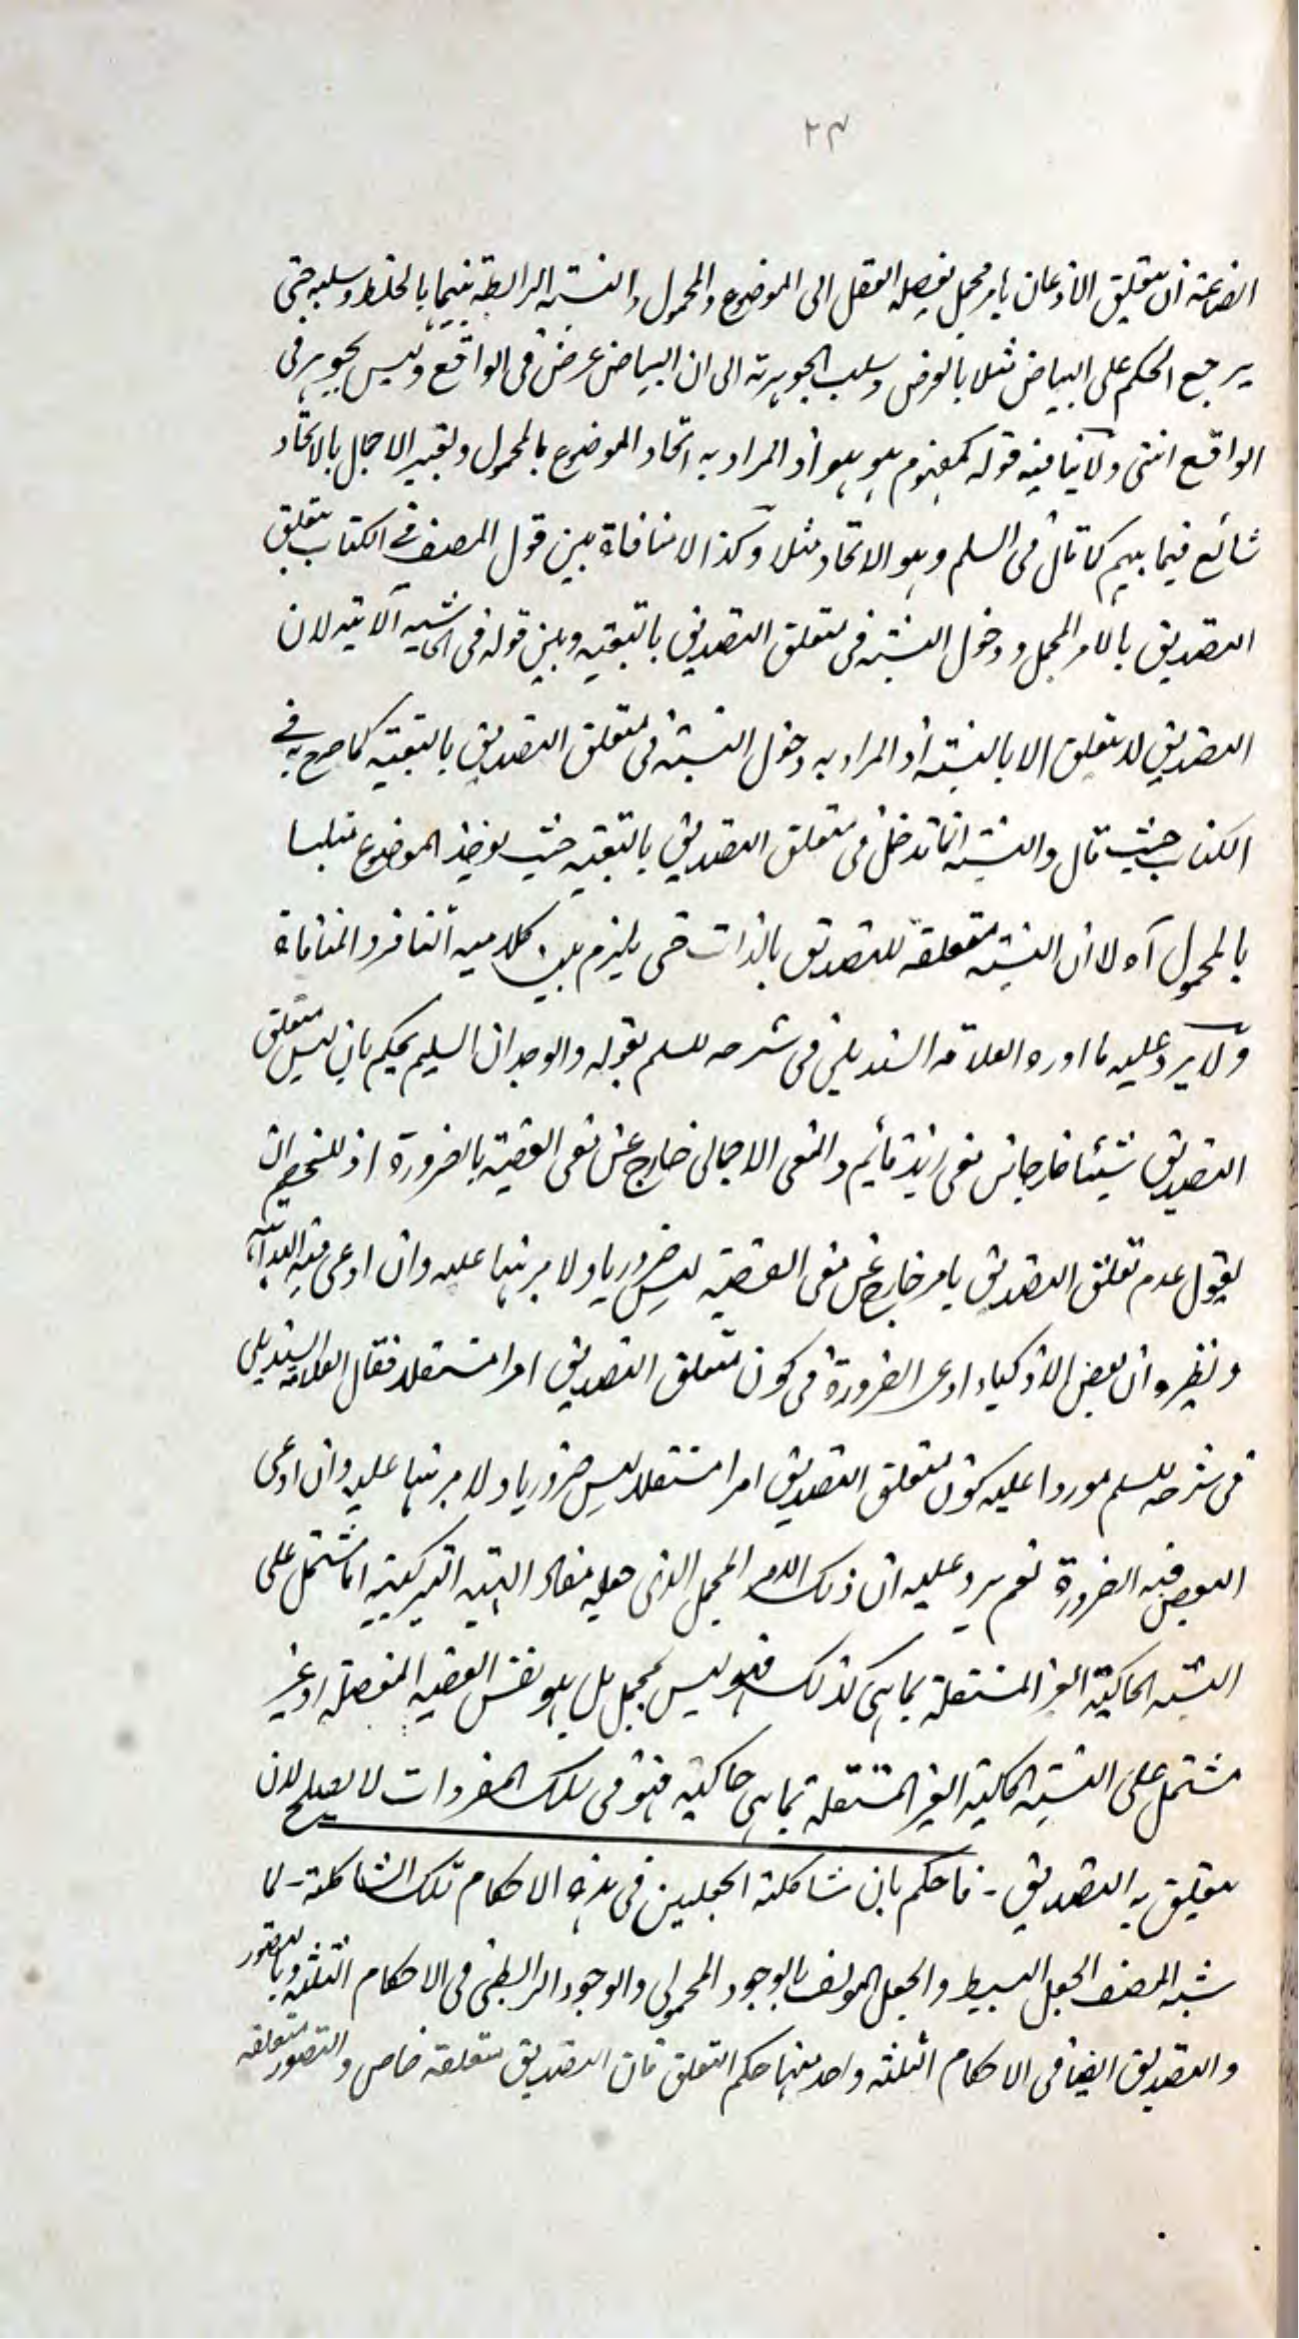 ٢٣
الصناعة أن يتعلق الاذعان بامر مجمل يفصله العقل الى الموضوع والمحمول والنسبة الرابطة بينهما بالخلط وسلبه حتى
يرجع الحكم على البياض مثلا بالعرض وسلب الجوهرية الى ان البياض عرض فى الواقع وليس بجوهر فى
الواقع انتهى ولا ينافيه قوله كمفهوم هو هو اذ المراد به اتحاد الموضوع بالمحمول وتعبير الاجمال بالاتحاد
شائع فيما بينهم كما قال فى السلم وهو الاتحاد مثلا وكذا لا منافاة بين قول المصنف فى الكتاب بتعلق
التصديق بالامر المجمل ودخول النسبة فى متعلق التصديق بالتبعية وبين قوله فى الحاشية الآتية لان
التصديق لا يتعلق الا بالنسبة اذ المراد به دخول النسبة فى متعلق التصديق بالتبعية كما صرح به فى
الكتاب حيث قال والنسبة انما تدخل فى متعلق التصديق بالتبعية حيث يوخذ الموضوع متلبسا
بالمحمول آه لا ان النسبة متعلقة للتصديق بالذات حتى يلزم بين كلاميه التنافر والمنافاة
ولا يرد عليه ما اورده العلامة السنديلى فى شرحه للسلم بقوله والوجدان السليم يحكم بان ليس متعلق
التصديق شيئا خارجا من معنى زيد قائم والمعنى الاجمالى خارج عن معنى القضية بالضرورة اذ للخصم ان
يقول عدم تعلق التصديق بامر خارج عن معنى القضية ليس ضروريا ولا مبرهنا عليه وان ادعى فيه البداهة
ونظيره ان بعض الاذكياء ادعى الضرورة فى كون متعلق التصديق امرا مستقلا فقال العلامة السنديلى
فى شرحه للسلم موردا عليه كون متعلق التصديق امرا مستقلا ليس ضروريا ولا مبرهنا عليه وان ادعى
البعض فيه الضرورة نعم يرد عليه ان ذلك الامر المجمل الذى جعله مفاد الهيئة التركيبية اما مشتمل على
النسبة الحاكية الغير المستقلة بما هى كذلك فهو ليس بمجمل بل هو نفس القضية المفصلة او غير
مشتمل على النسبة الحاكية الغير المستقلة بما هى حاكية فهو فى سلك المفردات لا يصلح لان
يتعلق به التصديق - فاحكم بان شاكلة الجعلين فى هذه الاحكام تلك الشاكلة - لما
شبه المصنف الجعل البسيط والجعل المولف بالوجود المحمولى والوجود الرابطى فى الاحكام الثلثة وبالتصور
والتصديق ايضا فى الاحكام الثلثة واحد منها حكم التعلق فان التصديق متعلقه خاص والتصور متعلقه